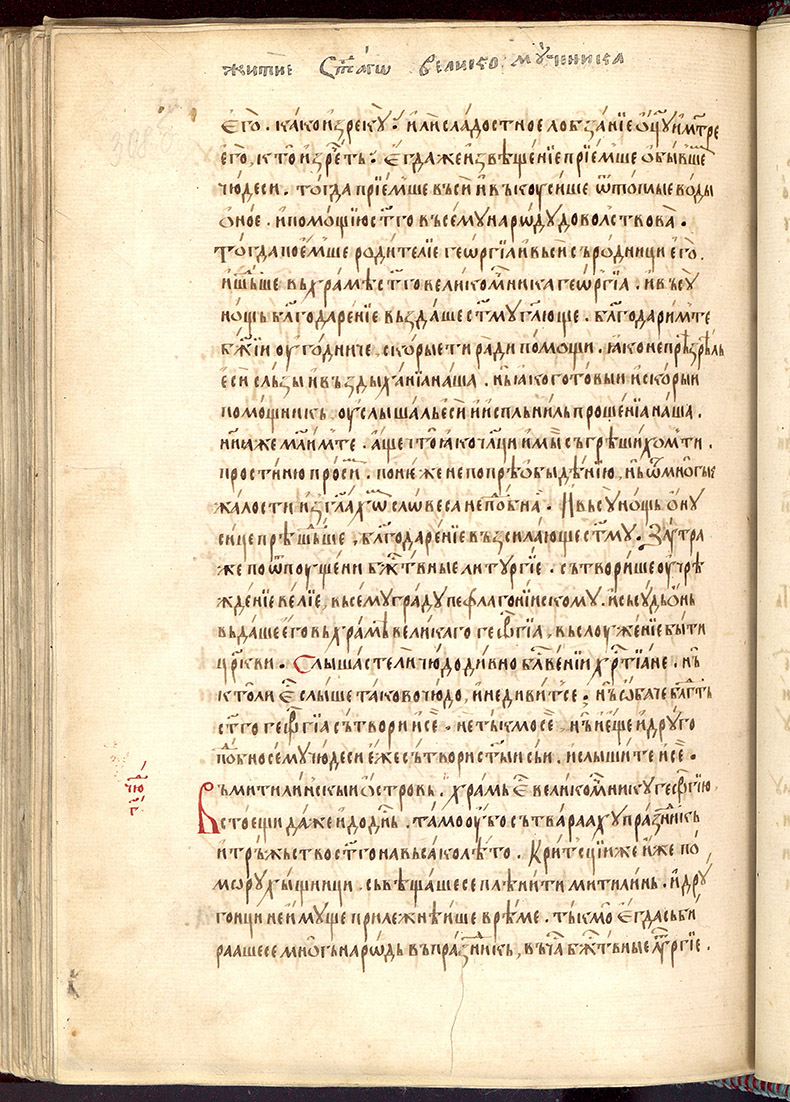 житїе Ст҃агѡ великомꙋченика
его̀. како изрекꙋ̀. или сладостное лобзанїе ѻ҆ц҃ꙋ и м҃тре
его̀, кто̀ изрⷱ҇еть. Егда же извѣщенїе прїемше ѡ бывше
чюдеси. тогда прїемше въси и въкоусише ѿ топлые воды
ѻное. и помощїю ст҃го въсемꙋ нарѡдꙋ доволствова.
тогда поемше родителїе геѡргїа и въси съродници его.
и шⷣьше въ храмь ст҃го великомч҃ника геѡргїа. и въсꙋ
нощь бл҃годаренїе въздаше ст҃мꙋ гл҃юще. бл҃годарим те
бж҃їи оугодниче. скорые ти ради помощи. ꙗко не прѣзрѣль
еси сльзы и въздыханїа наша. нь ꙗко готовыи и скорыи
помощникь оуслышаль еси и испльниль прошенїа наша.
нн҃ꙗ же мл҃им те. аще что̀ ꙗко чл҃ци имы̏ съгрѣшихом ти.
простиню проси. понеже не по прѣѡбидѣнїю, нь ѿ многые
жалости изгл҃ахѡⷨ словеса не поⷣбна. И въсꙋ нощь ѻнꙋ
сице прѣшⷣьше, бл҃годаренїе въсилающе ст҃мꙋ. Заꙋтра
же по ѿпоущени бжⷭ҇твные литꙋргїе. сътворише оучрѣ
жденїе велїе, въсемꙋ градꙋ пефлагонїискомꙋ. и съсꙋдь ѻнь
въдаше его въ храмь великаго геѡргїа, въ слоуженїе быти
цр҃кви. Слышасте ли чюдо дивно бл҃гвенїи хрⷭ҇тїане. нь
кто ли еⷭ҇ слыше таково чюдо, и не дивит се; нь ѡбаче бл҃гⷣть
ст҃го геѡргїа сътвори и се̏. не тькмо се̏, нь и еще и дрꙋго
поⷣбно семꙋ чюдеси еже сътвори ст҃ыи сьи. и слышите и се̏.
чюⷣ г҃.
Въ митилинскыи ѻстровь. храмь еⷭ҇ великомч҃никꙋ геѡргїю,
стоещи даже и до дн҃ь. тамо оубо сътвараахꙋ праⷥникь
и трьжьство ст҃го на въсако лѣто. Критсцїи же иже по
морꙋ хыщници. съвѣщаше се плѣнити митилинь. и дрꙋ
гоици не имꙋще прилежнѣише врѣме. тькмо̀ егда събы
рааше се многь нарѡдь въ праⷥникь, въ ча̏ бжⷭ҇твные лт҃ꙋргїе.